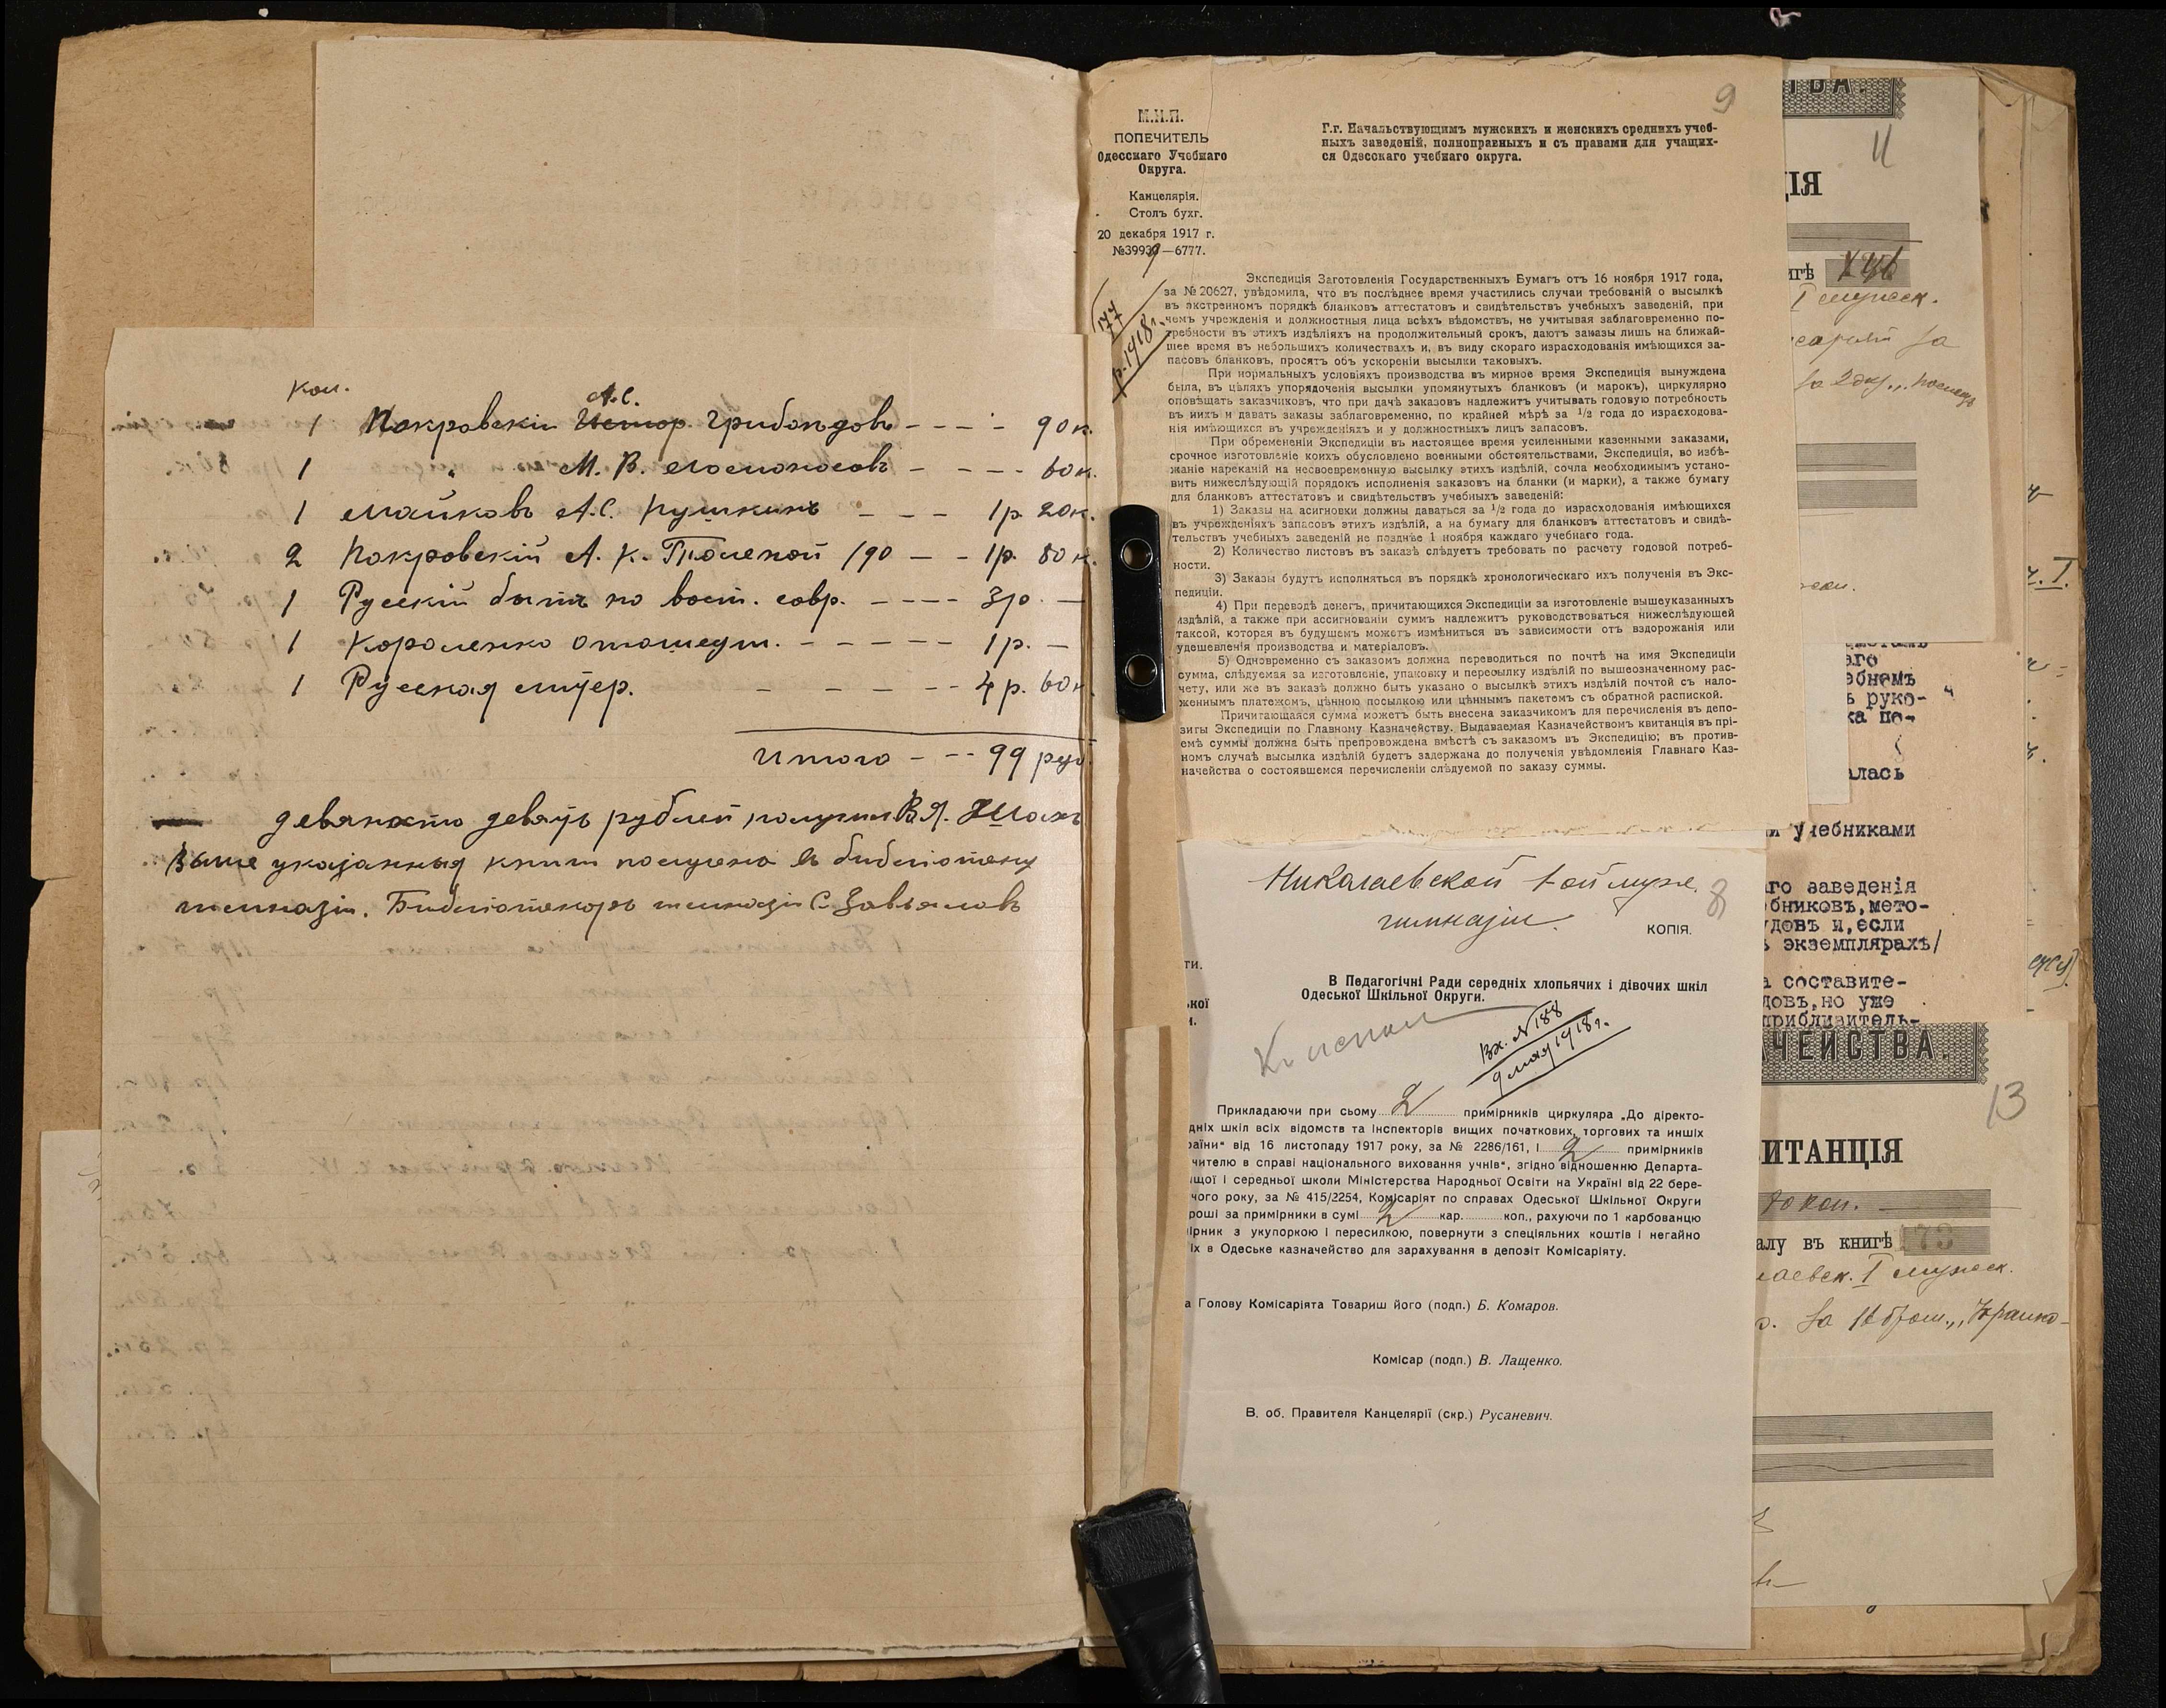 Кол.
1 Покровскій А.С. Грибоѣдовъ - - - - 90 к.
1 " М. В. Ломоносовъ - - - - 60 к.
1 Майковъ А.С. Пушкинъ - - - 1р. 20к.
2 Покровскій А. К. Толстой /90 - - 1р. 80 к.
1 Русскій бытъ по восп. совр. - - - - 3р. —
1 Короленко Отошедш. - - - - - 1р. —
1 Русская - - - - - 4 р. 60 к.
Итого - - - 99 руб.
девяносто девять рублей, получил В. Я.
Выше указанныя книги получено въ библіотеку
гимназіи. Библіотекарь гимназіи С. Завьялов
9
М.Н.П.
ПОПЕЧИТЕЛЬ
Одесскаго Учебнаго
Округа.
Канцелярія.
Столъ бухг.
20 декабря 1917 г.
№39939—6777.
1918г.
Г.г. Начальствующимъ мужскихъ и женскихъ среднихъ учеб-
ныхъ заведеній, полноправныхъ и съ правами для учащих-
ся Одесскаго учебнаго округа.
Экспедиція Заготовленія Государственныхъ Бумагъ отъ 16 ноября 1917 года,
за № 20627, увѣдомила, что въ послѣднее время участились случаи требованій о высылкѣ
въ экстренномъ порядкѣ бланковъ аттестатовъ и свидѣтельствъ учебныхъ заведеній, при
чемъ учрежденія и должностныя лица всѣхъ вѣдомствъ, не учитывая заблаговременно по-
требности въ этихъ издѣліяхъ на продолжительный срокъ, даютъ заказы лишь на ближай-
шее время въ небольшихъ количествахъ и, въ виду скораго израсходованія имѣющихся за-
пасовъ бланковъ, просятъ объ ускореніи высылки таковыхъ.
При нормальныхъ условіяхъ производства въ мирное время Экспедиція вынуждена
была, въ цѣляхъ упорядоченія высылки упомянутыхъ бланковъ (и марокъ), циркулярно
оповѣщать заказчиковъ, что при дачѣ заказовъ надлежитъ учитывать годовую потребность
въ нихъ и давать заказы заблаговременно, по крайней мѣрѣ за 1/2 года до израсходова-
нія имѣющихся въ учрежденіяхъ и у должностныхъ лицъ запасовъ.
При обремененіи Экспедиціи въ настоящее время усиленными казенными заказами,
срочное изготовленіе коихъ обусловлено военными обстоятельствами, Экспедиція, во избѣ-
жаніе нареканій на несвоевременную высылку этихъ издѣлій, сочла необходимымъ устано-
вить нижеслѣдующій порядокъ исполненія заказовъ на бланки (и марки), а также бумагу
для бланковъ аттестатовъ и свидѣтельствъ учебныхъ заведеній:
1) Заказы на асигновки должны даваться за 1/2 года до израсходованія имѣющихся
въ учрежденіяхъ запасовъ этихъ издѣлій, а на бумагу для бланковъ аттестатовъ и свидѣ-
тельствъ учебныхъ заведеній не позднѣе 1 ноября каждаго учебнаго года.
2) Количество листовъ въ заказѣ слѣдуетъ требовать по расчету годовой потреб-
ности.
3) Заказы будутъ исполняться въ порядкѣ хронологическаго ихъ полученія въ Экс-
педиціи.
4) При переводѣ денегъ, причитающихся Экспедиціи за изготовленіе вышеуказанныхъ
издѣлій, а также при ассигнованіи суммъ надлежитъ руководствоваться нижеслѣдующей
таксой, которая въ будущемъ можетъ измѣниться въ зависимости отъ вздорожанія или
удешевленія производства и матеріаловъ.
5) Одновременно съ заказомъ должна переводиться по почтѣ на имя Экспедиціи
сумма, слѣдуемая за изготовленіе, упаковку и пересылку издѣлій по вышеозначенному рас-
чету, или же въ заказѣ должно быть указано о высылкѣ этихъ издѣлій почтой съ нало-
женнымъ платежомъ, цѣнною посылкою или цѣннымъ пакетомъ съ обратной распиской.
Причитающаяся сумма можетъ быть внесена заказчикомъ для перечисленія въ депо-
зиты Экспедиціи по Главному Казначейству. Выдаваемая Казначействомъ квитанція въ прі-
емѣ суммы должна быть препровождена вмѣстѣ съ заказомъ въ Экспедицію; въ против-
номъ случаѣ высылка издѣлій будетъ задержана до полученія увѣдомленія Главнаго Каз-
начейства о состоявшемся перечисленіи слѣдуемой по заказу суммы.
Николаевской 1-ой мужс.
гимназіи.
8
КОПІЯ.
В Педагогічні Ради середніх хлопьячих і дівочих шкіл
Одеської Шкільної Округи.
Вх. № 188
9 мая 1918 г.
Прикладаючи при сьому 2 примірників циркуляра „До діректо-
дніх шкіл всіх відомств та інспекторів вищих початкових, торгових та инших
раїни“ від 16 листопаду 1917 року, за № 2286/161, і 2 примірників
чителю в справі національного виховання учнів“, згідно відношенню Департа-
ищої і середньої школи Міністерства Народньої Освіти на Україні від 22 бере-
чого року, за № 415/2254, Комісаріят по справах Одеської Шкільної Округи
роші за примірники в сумі 2 кар. коп., рахуючи по 1 карбованцю
ірник з укупоркою і пересилкою, повернути з спеціяльних коштів і негайно
їх в Одеське казначейство для зарахування в депозіт Комісаріяту.
а Голову Комісаріята Товариш його (подп.) Б. Комаров.
Комісар (подп.) В. Лащенко.
В. об. Правителя Канцелярії (скр.) Русаневич.
11
ІЯ
игѣ
I мужеск.
за
эбнемъ
ь руко-
ка по-
алась
и учебниками
аго заведенія
бниковъ,мето-
довъ и,если
ъ экземплярахъ/
а составите-
довъ,но уже
приблизитель-
АЧЕЙСТВА.
13
ИТАНЦІЯ
70 коп.
алу въ книгѣ 73
лаевск. I мужеск.